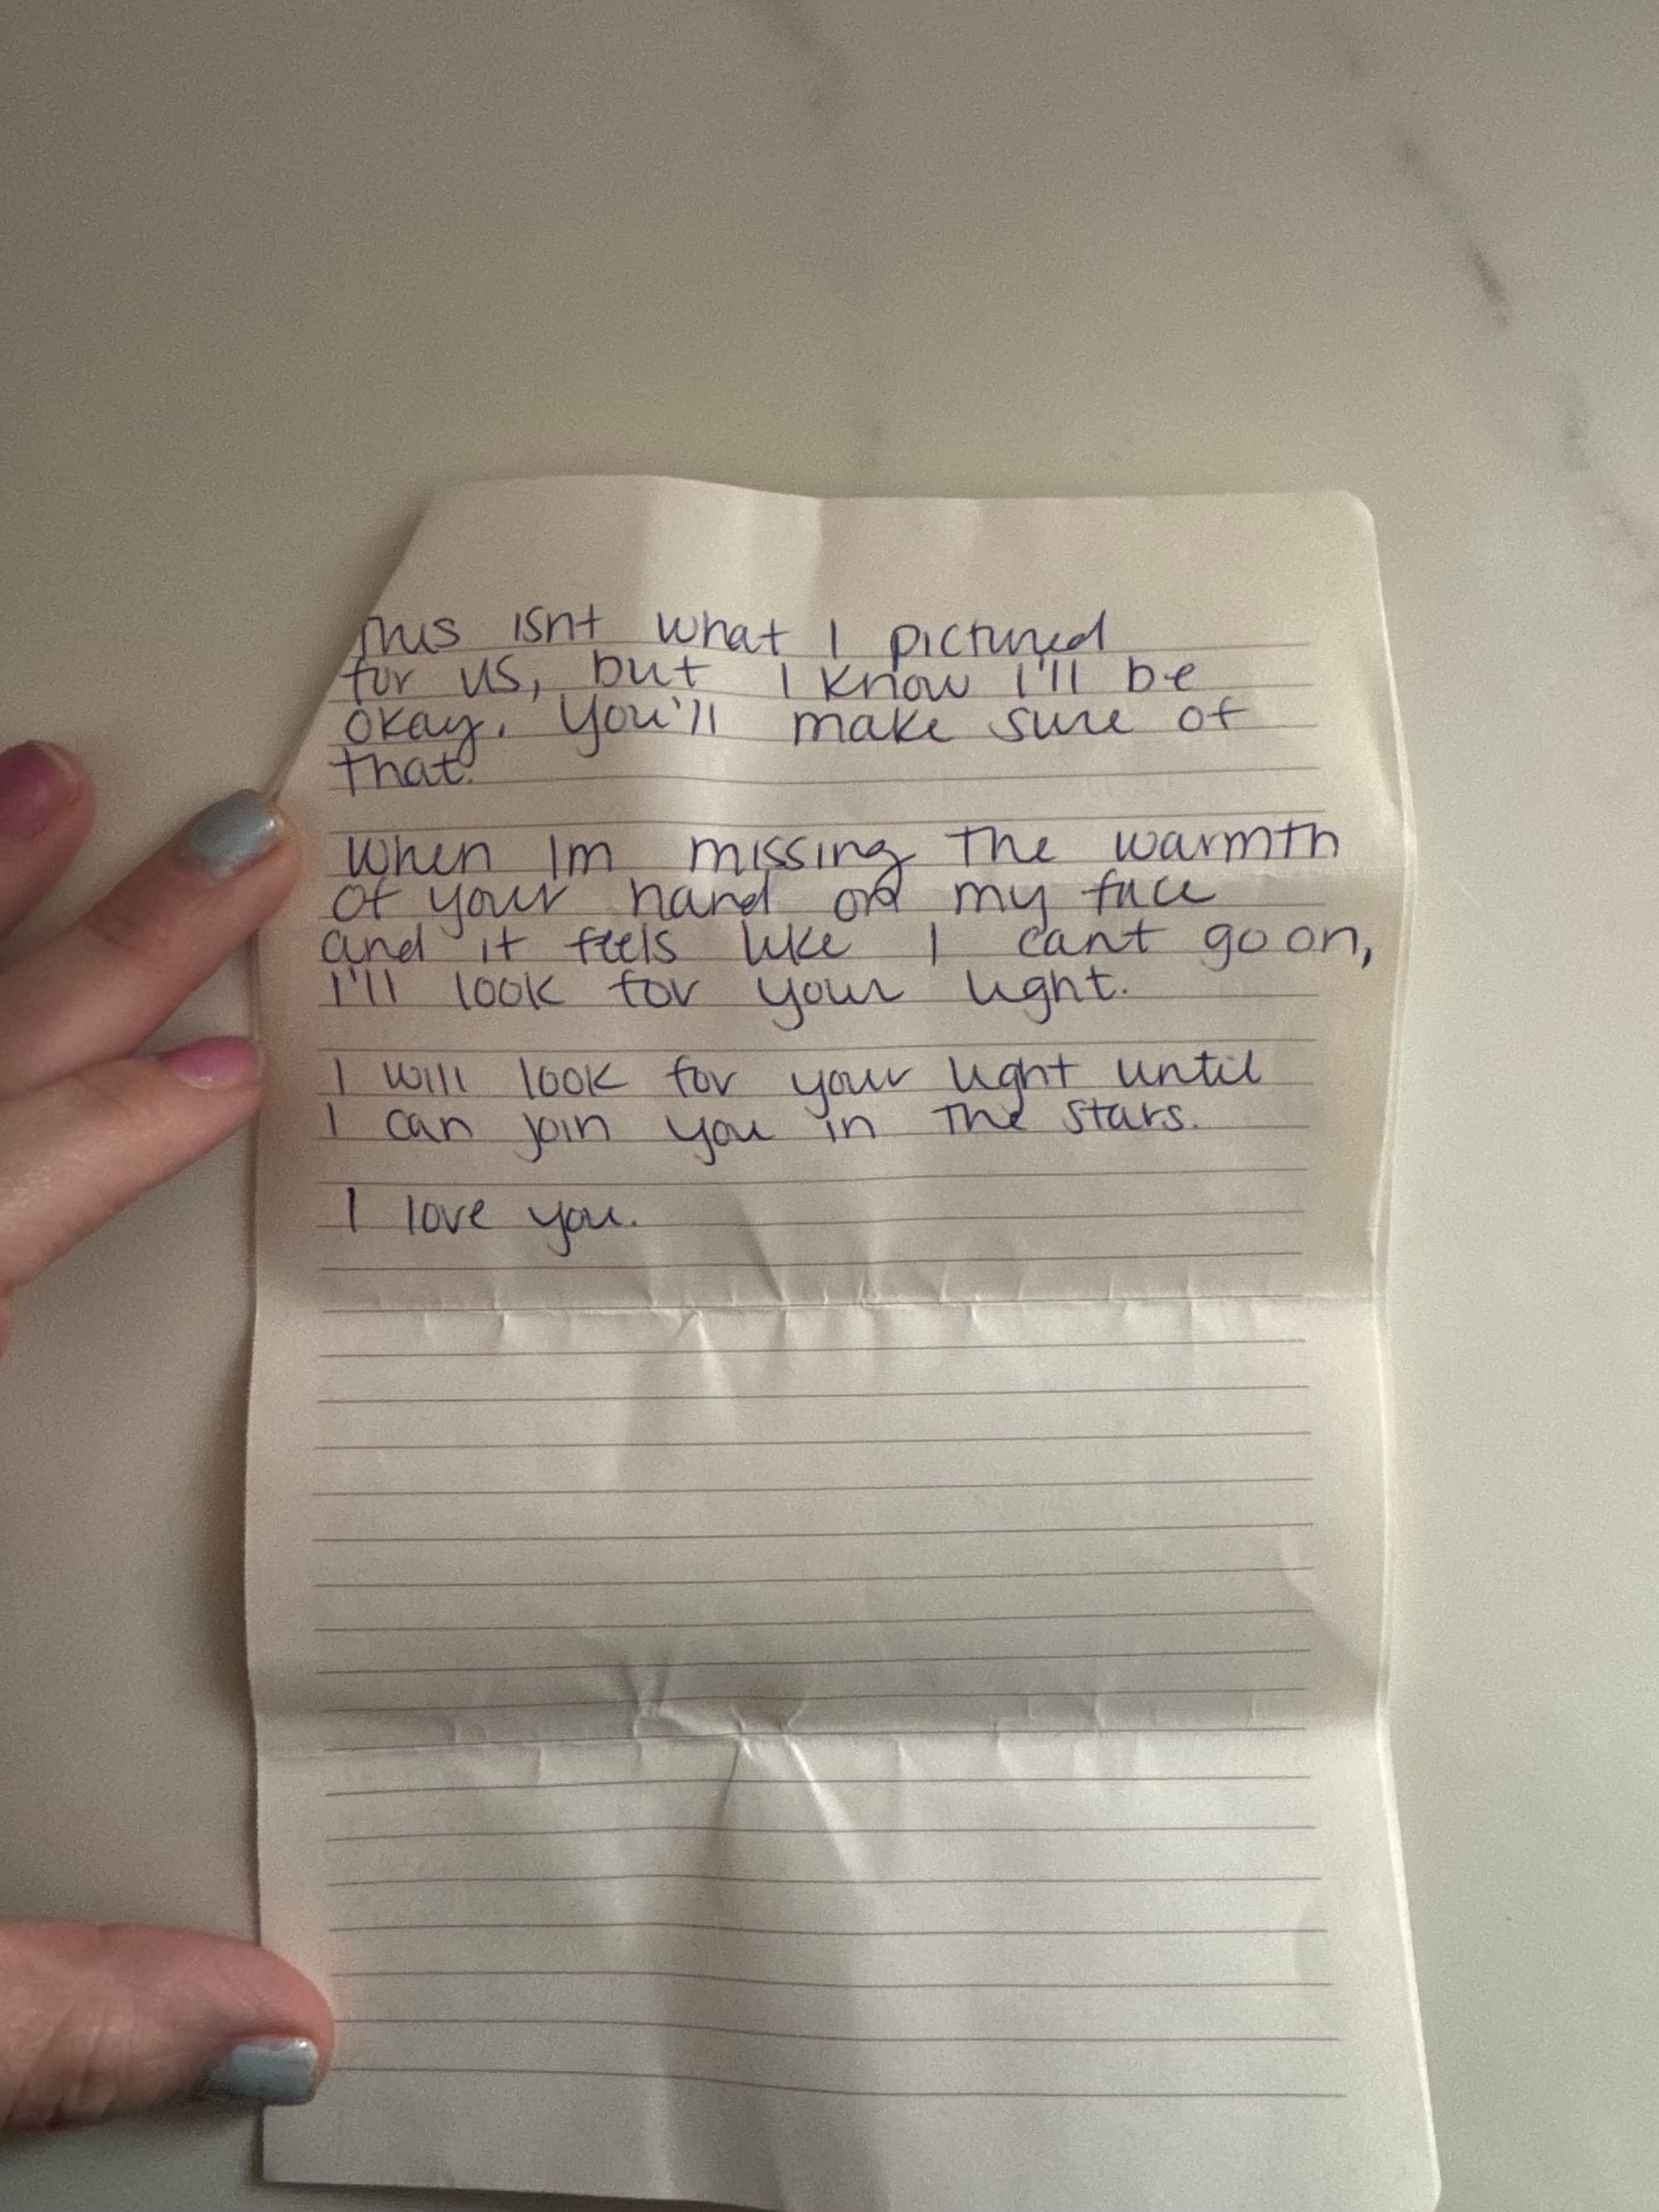 This isnt what I pictured
for us, but I know I'll be
okay. You'll make sure of
that.
When Im missing the warmth
of your hand on my face
and it feels like I cant go on,
I'll look for your light.
I will look for your light until
I can join you in the stars.
I love you.